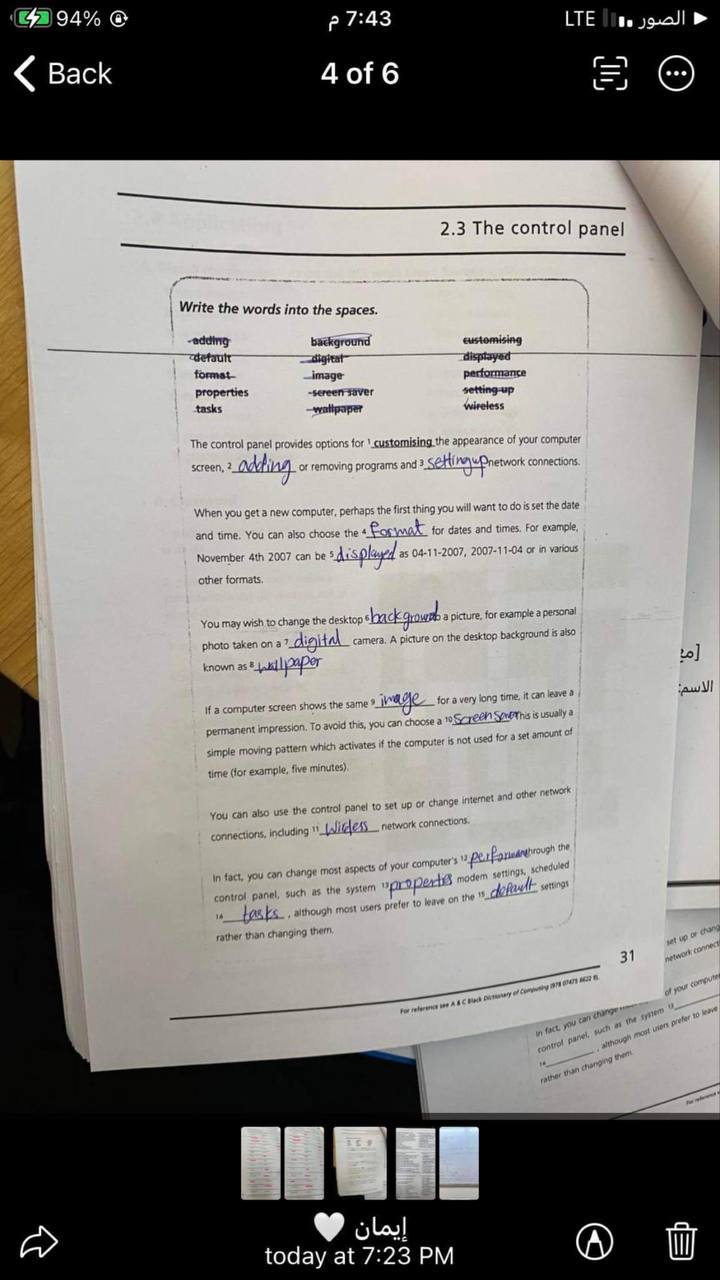 94% 7:43 م LTE الصور
Back 4 of 6
2.3 The control panel
Write the words into the spaces.
adding background customising
default digital displayed
format image performance
properties screen saver setting up
tasks wallpaper wireless
The control panel provides options for 1 customising the appearance of your computer
screen, 2 adding or removing programs and 3 setting up network connections.
When you get a new computer, perhaps the first thing you will want to do is set the date
and time. You can also choose the 4 format for dates and times. For example,
November 4th 2007 can be 5 displayed as 04-11-2007, 2007-11-04 or in various
other formats.
You may wish to change the desktop 6 background a picture, for example a personal
photo taken on a 7 digital camera. A picture on the desktop background is also
known as 8 wallpaper
If a computer screen shows the same 9 image for a very long time, it can leave a
permanent impression. To avoid this, you can choose a 10 Screen saver This is usually a
simple moving pattern which activates if the computer is not used for a set amount of
time (for example, five minutes).
You can also use the control panel to set up or change internet and other network
connections, including 11 network connections.
In fact, you can change most aspects of your computer's 12 through the
control panel, such as the system 13 modem settings, scheduled
14 tasks, although most users prefer to leave on the 15 default settings
rather than changing them.
31
For reference see A & C Black Dictionary of Computing (978 07475 6622 8).
الاسم:
set up or chang
network connect
of your compute
In fact, you can change
control panel, such as the system 13
14 , although most users prefer to leave
rather than changing them.
For reference
إيمان
today at 7:23 PM